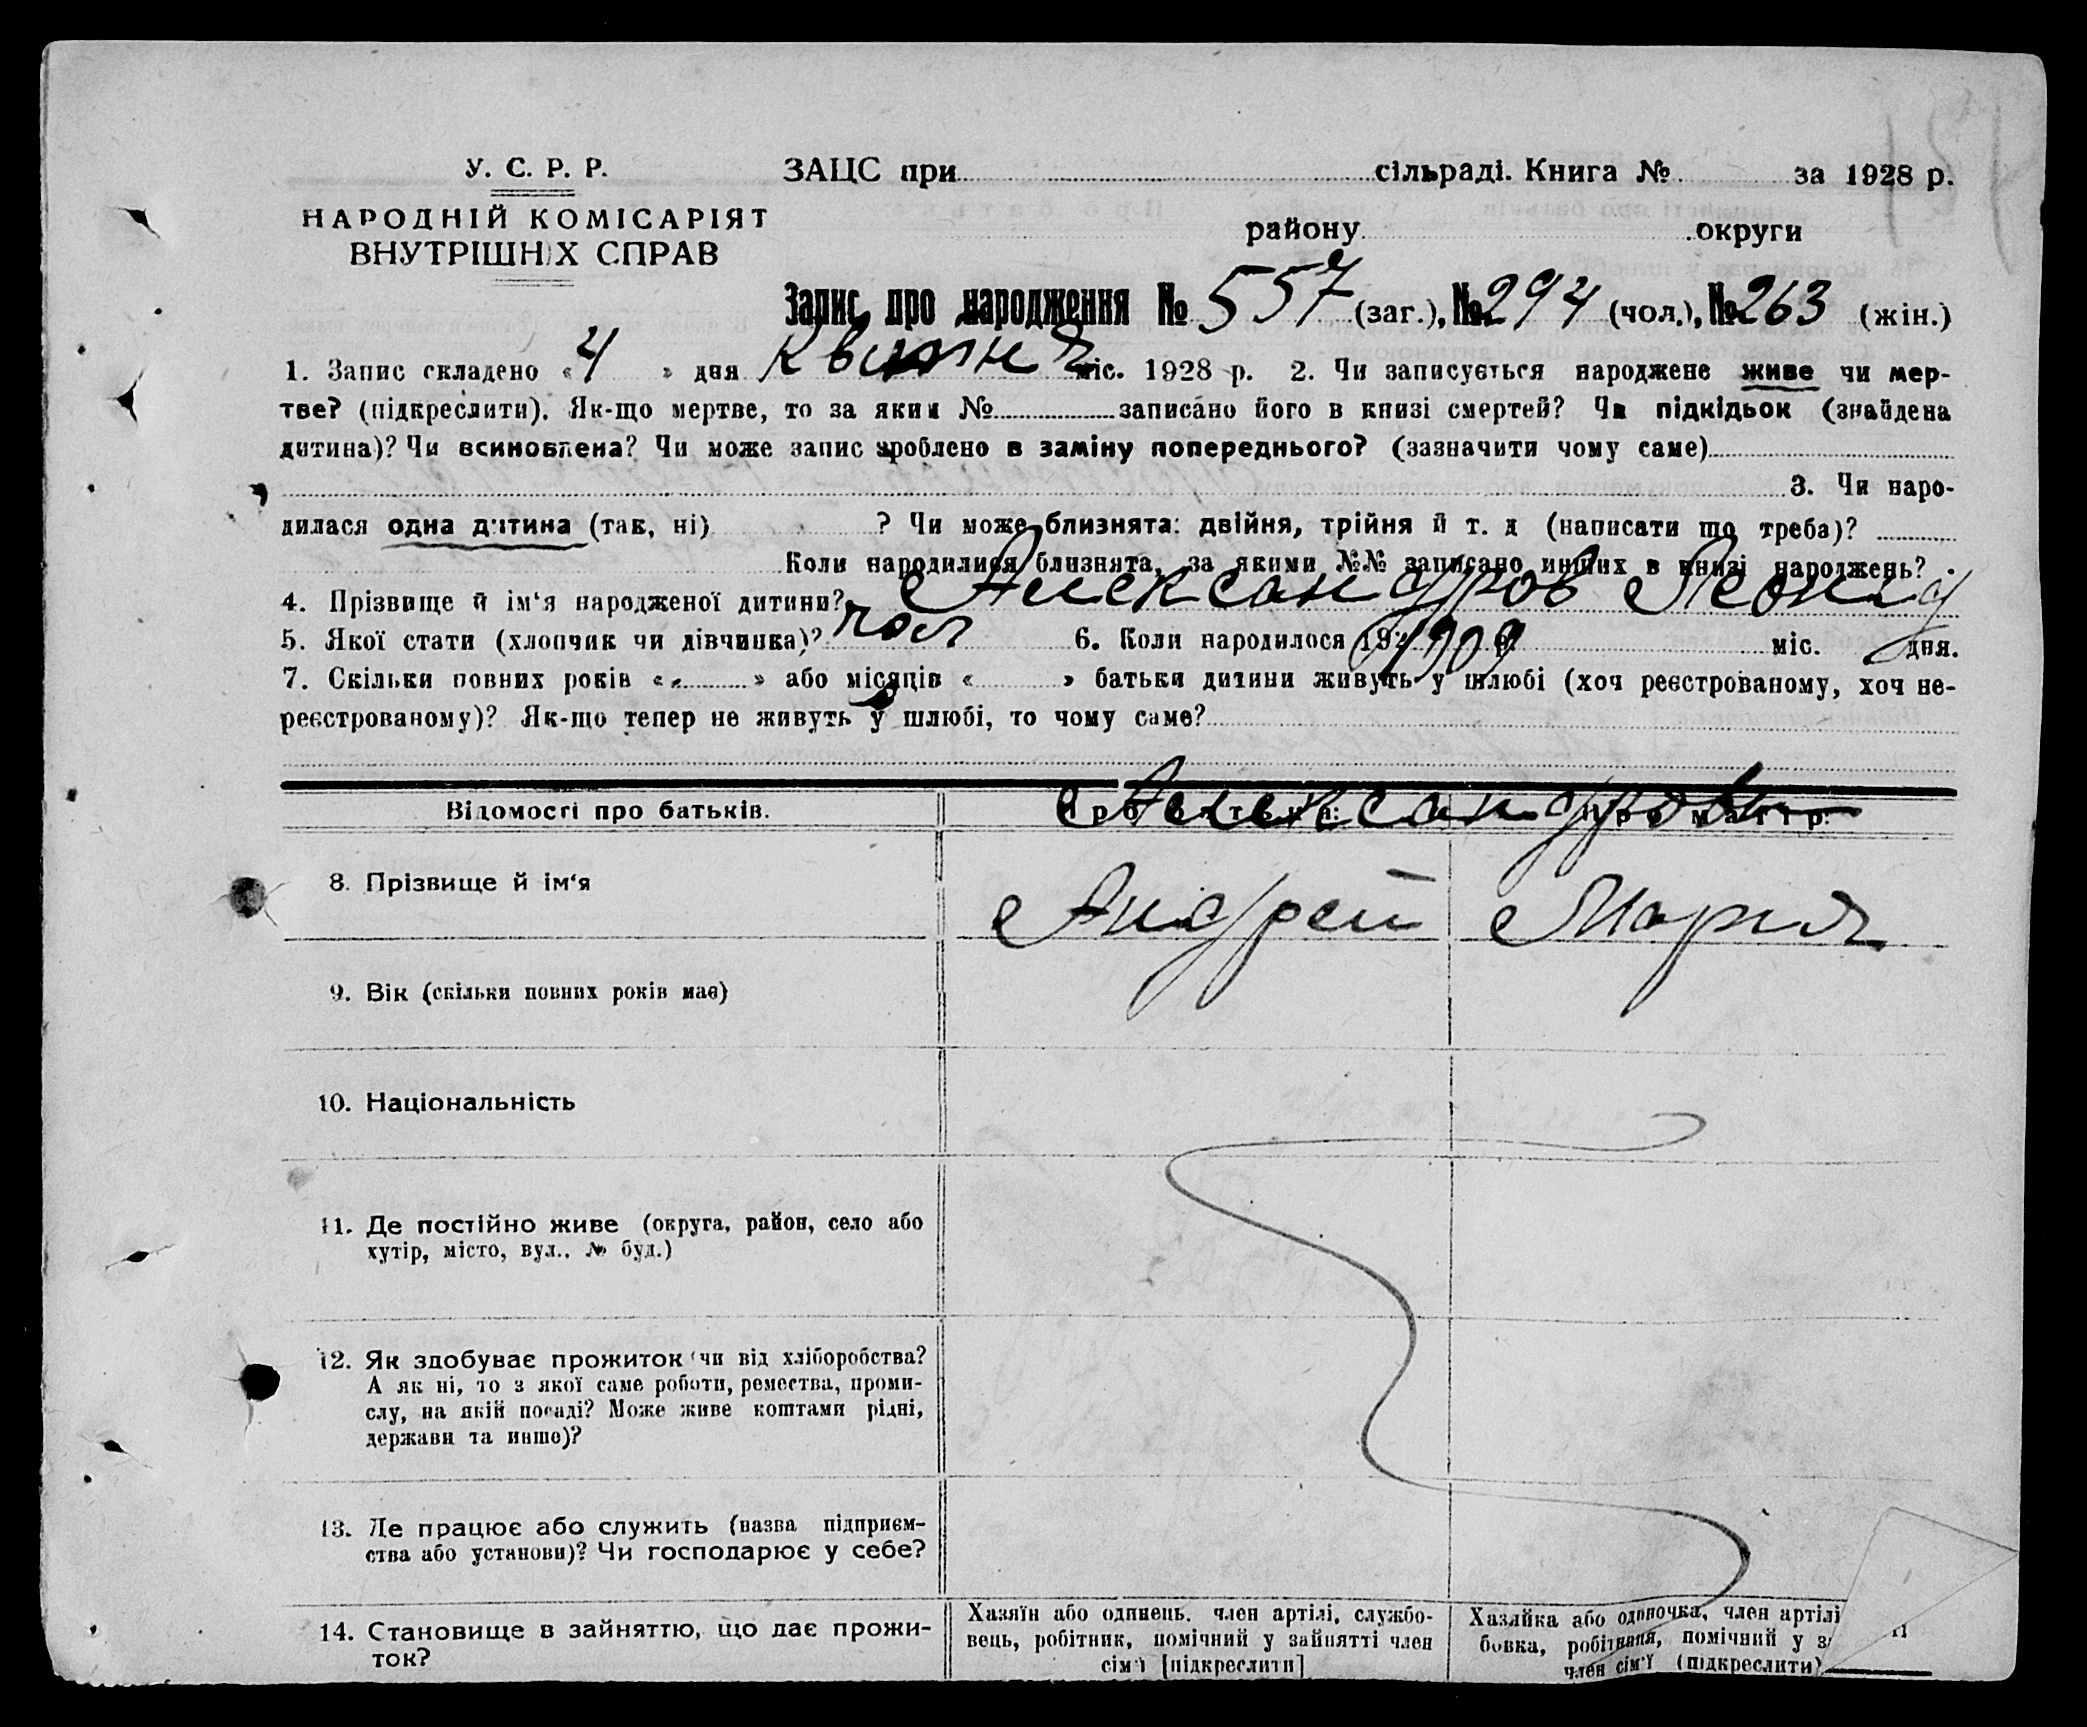 У. С. Р. Р.
НАРОДНІЙ КОМІСАРІЯТ
ВНУТРІШНІХ СПРАВ
ЗАЦС при сільраді. Книга № за 1928 р.
району округи
Запис про народження № 557 (заг.), № 294 (чол.), № 263 (жін.)
1. Запис складено « 4 » дня Квитня міс. 1928 р. 2. Чи записується народжене живе чи мер-
тве? (підкреслити). Як-що мертве, то за яким № записано його в книзі смертей? Чи підкідьок (знайдена
дитина)? Чи всиновлена? Чи може запис зроблено в заміну попереднього? (зазначити чому саме)
3. Чи наро-
дилася одна дитина (так, ні) ? Чи може близнята: двійня, трійня й т. д (написати що треба)?
Коли народилися близнята, за якими №№ записано инших в книзі народжень?
4. Прізвище й ім‘я народженої дитини? Александров Леонид
5. Якої стати (хлопчик чи дівчинка)? чол 6. Коли народилося 1909 міс. дня.
7. Скільки повних років « » або місяців « » батьки дитини живуть у шлюбі (хоч реєстрованому, хоч не-
реєстрованому)? Як-що тепер не живуть у шлюбі, то чому саме?
Відомості про батьків. Про батька: Про матір:
Александровы
8. Прізвище й ім‘я Андрей Мария
9. Вік (скільки повних років має)
10. Національність
11. Де постійно живе (округа, район, село або
хутір, місто, вул.. № буд.)
12. Як здобуває прожиток (чи від хліборобства?
А як ні, то з якої саме роботи, ремества, проми-
слу, на якій посаді? Може живе коштами рідні,
держави та инше)?
13. Де працює або служить (назва підприєм-
ства або установи)? Чи господарює у себе?
14. Становище в зайняттю, що дає прожи-
ток?
Хазяїн або одинець. член артілі, службо-
вець, робітник, помічний у зайнятті член
сім‘ї [підкреслити]
Хазяйка або одиночка, член артілі
бовка, робітниця, помічний у
член сім‘ї (підкреслити)